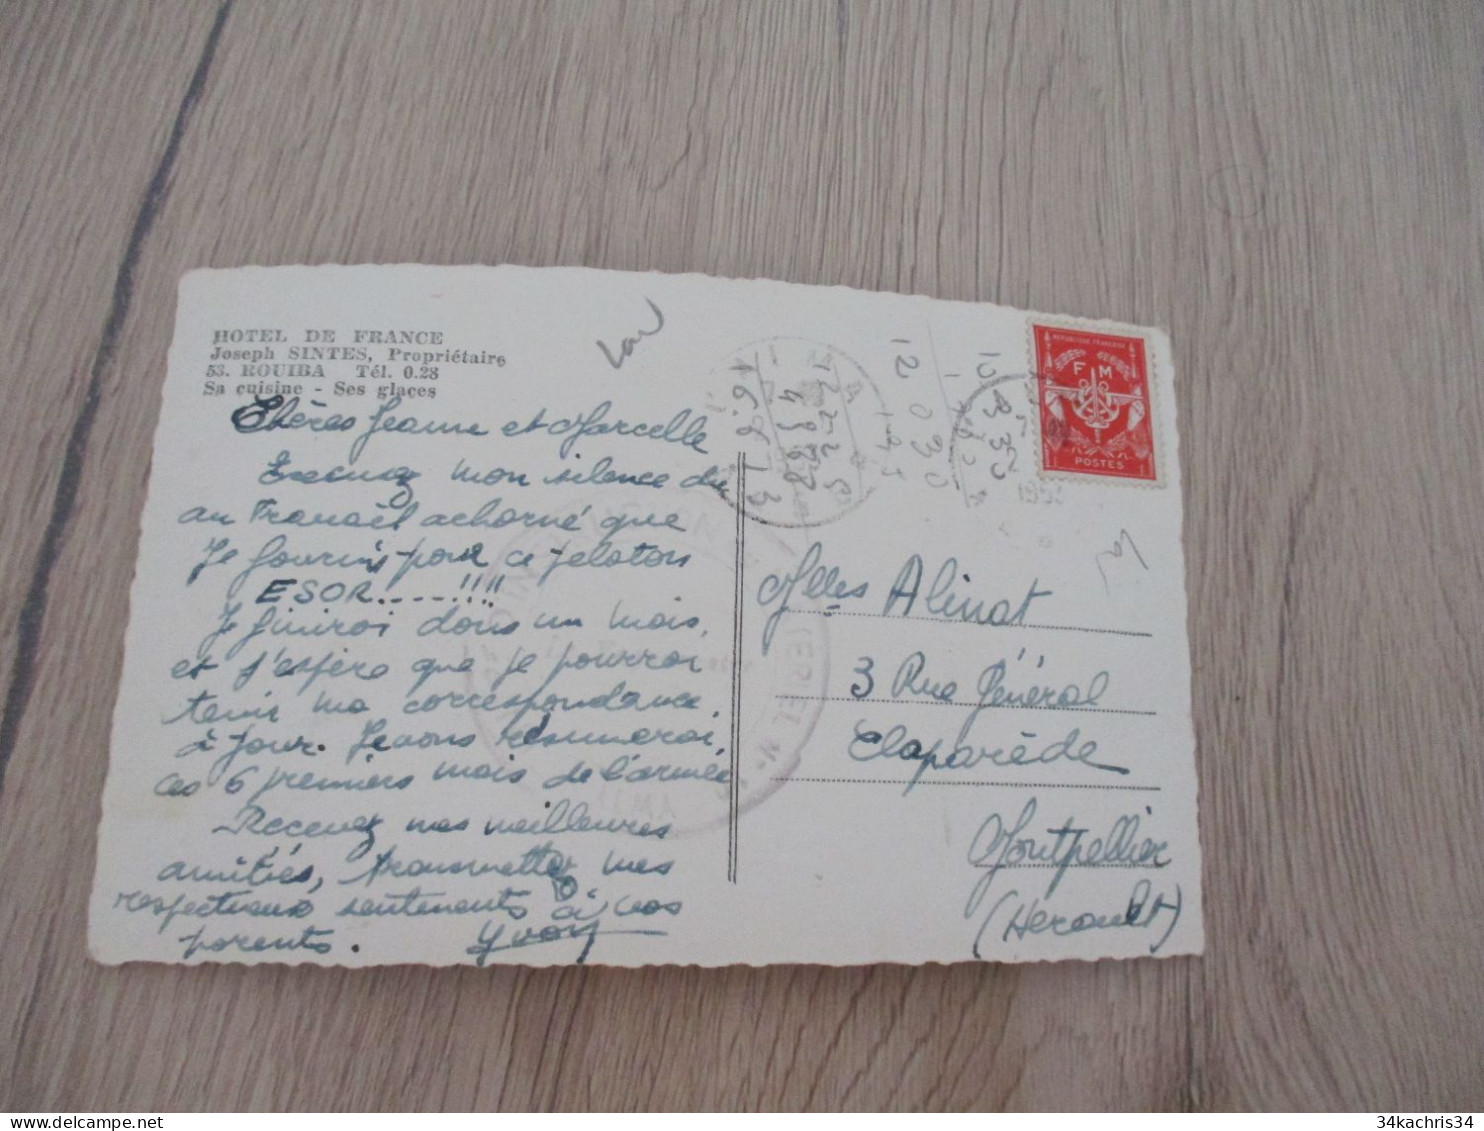 HOTEL DE FRANCE
Joseph SINTES, Propriétaire
53. ROUIBA Tél. 0.28
Sa cuisine - Ses glaces
Chères Jeanne et Marcelle
Excusez mon silence du
au Travail acharné que
Je fournis pour ce peloton
ESOR....!!!!
Je finirai dans un mois,
et j'espère que je pourrai
tenir ma correspondance
à jour. Je vous résumerai,
ces 6 premiers mois de l'armée
Recevez mes meilleures
amitiés, transmettez mes
respectueux sentements à vos
parents. Yvon
REPUBLIQUE FRANÇAISE
F M
POSTES
Mlles Alinat
3 Rue Général
Claparède
Montpellier
(Herault)
34kachris34
delcampe.net